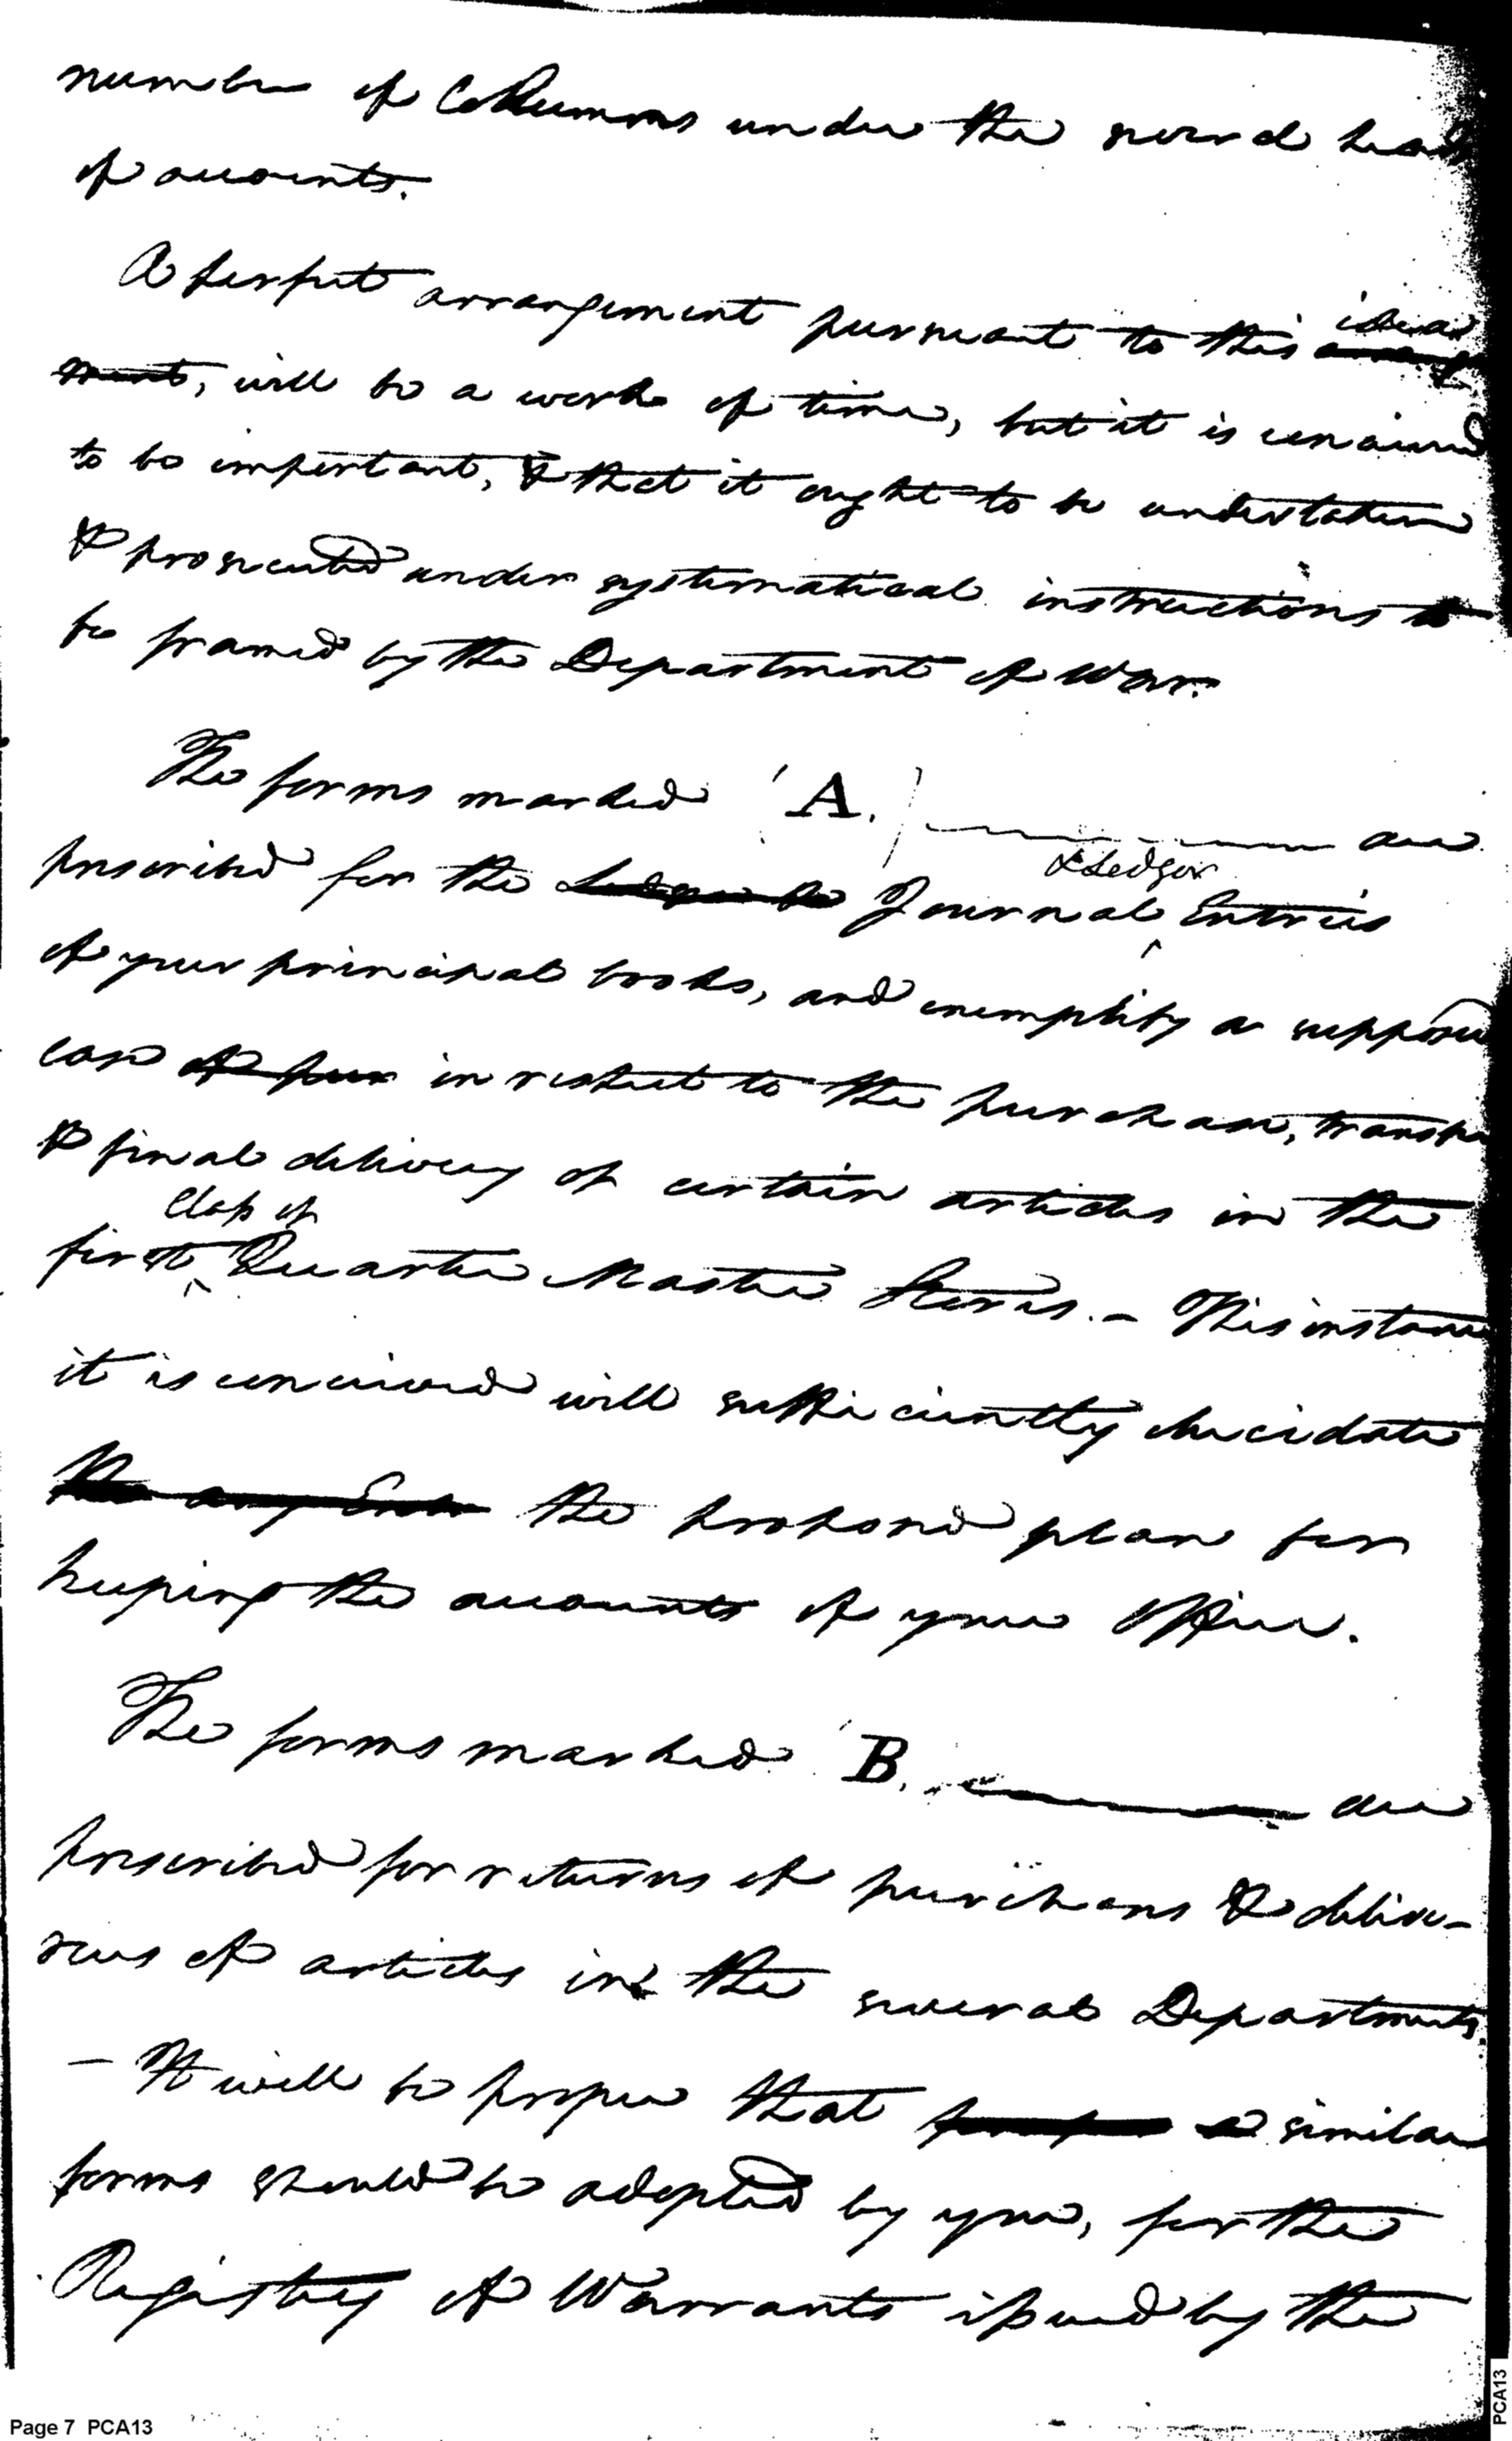 number of Collumns under the several heads
of accounts.
A perfect arrangement pursuant to this idea
ment, will be a work of time, but it is conceived
to be important, & that it ought to be undertaken
& prosecuted under systematical instructions to
be framed by the Department of War.
The forms marked A. are
prescribed for the Ledger & Journal & Ledger Entries
of your principal books, and exemplify a supposed
case of pur in respect to the purchase, transpo
& final delivery of certain articles in the
first Class of Quarter Master Stores. – This instance
it is conceived will sufficiently elucidate
the any Entr the proposed plan for
keeping the accounts of your Office.
The forms marked B. are
prescribed for returns of purchases & delive-
ries of articles in the several Departments.
– It will be proper that similar
forms should be adopted by you, for the
Registry of Warrants issued by the
Page 7 PCA13
PCA13